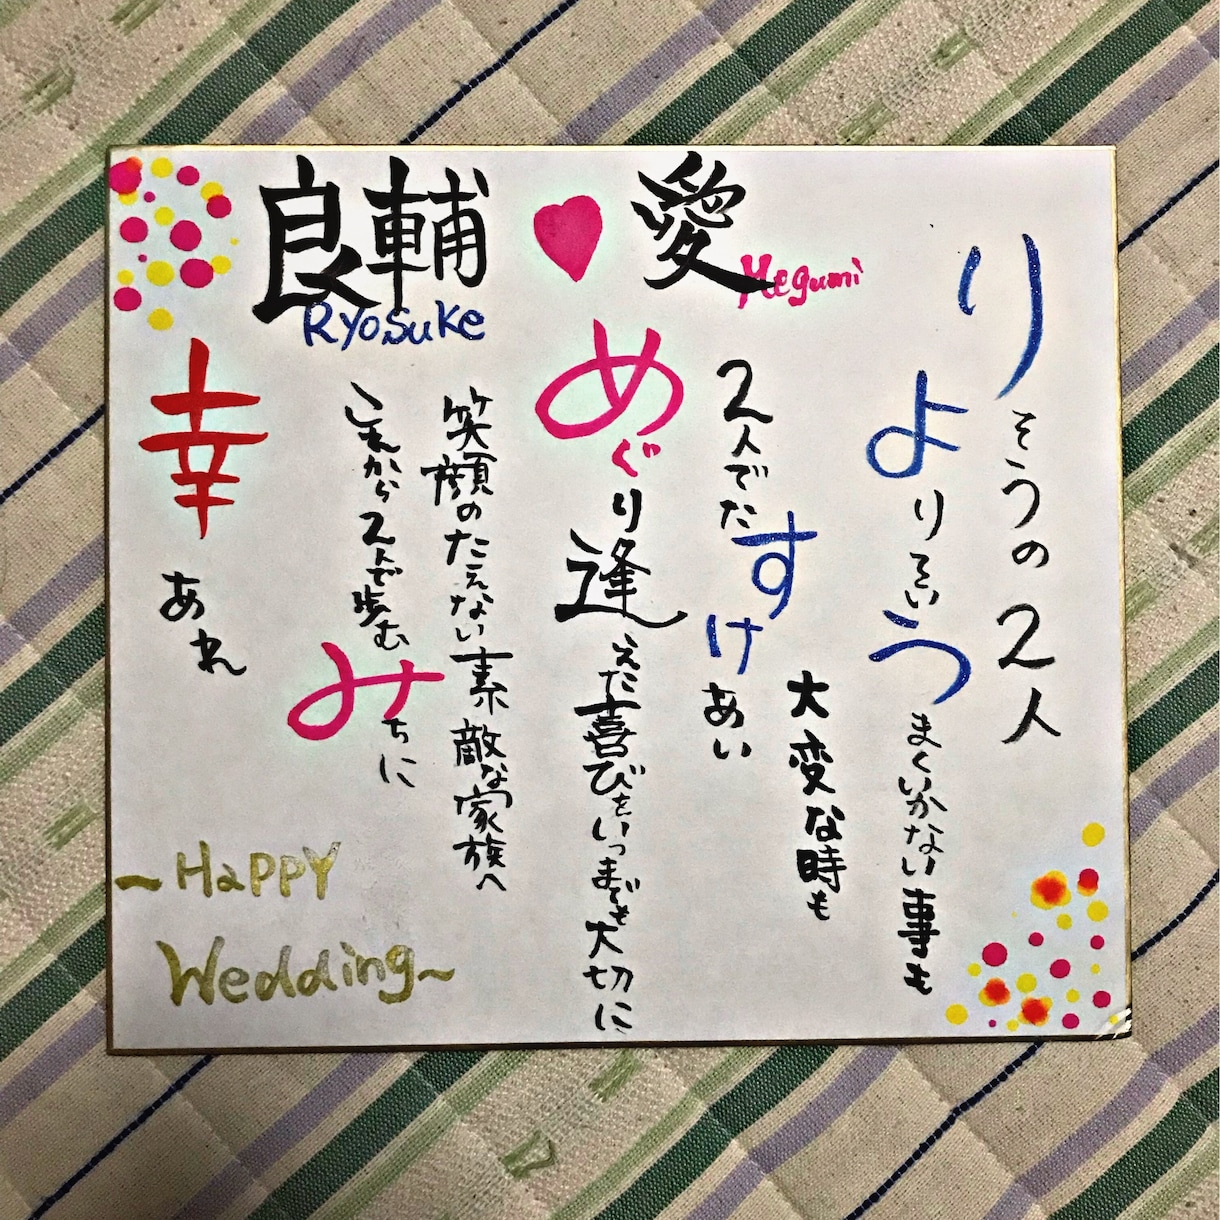 良輔 ♥ 愛
Ryosuke
Megumi
りそうの2人
よりそい
うまくいかない事も
大変な時も
2人でたすけあい
めぐり逢えた喜びをいつまでも大切に
笑顔のたえない素敵な家族へ
これから2人で歩む
みちに
幸あれ
~HaPPY
Wedding~